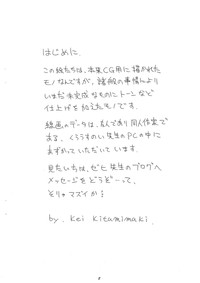 はじめに.
この絵たちは、本来CG用に描かれた
モノなんですが、諸般の事情により
いまだ未完成なものにトーンなど
仕上げを加えたモノです.
線画のデータは、なんであり同人作家で
ある、くろうすのい先生のPCの中に
あずかっていただいています.
見たい方は、ぜひ先生のブログへ
メッセージをどうぞーって、
そりゃマズイか!
by. Kei Kitamimaki.